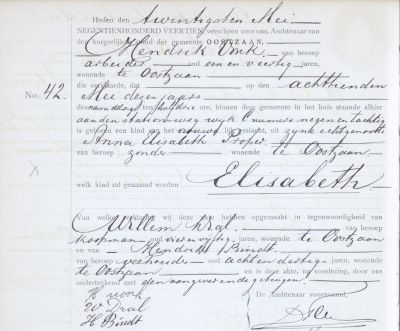 Heden den twintigsten Mei
NEGENTIENHONDERD VEERTIEN, verscheen voor ons, Ambtenaar van
den burgerlijken stand der gemeente OOSTZAAN,
Hendrik Vonk van beroep
arbeider oud een en veertig jaren,
wonende te Oostzaan
die verklaarde, dat op den achttienden
No. 42. Mei dezes jaars
des namiddags ten ure, binnen deze gemeente in het huis staande alhier
aan den stationsweg wijk C nummer negen en tachtig
is geboren een kind van het vrouwelijk geslacht, uit zijne echtgenoote
Anna Elisabeth Proper
van beroep zonder wonende te Oostzaan
welk kind zal genaamd worden Elisabeth.
Van welke verklaring wij deze akte hebben opgemaakt in tegenwoordigheid van
Willem Dral van beroep
koopman oud vier en vijftig jaren, wonende te Oostzaan
en van Hendrik Bindt
van beroep veehouder oud acht en dertig jaren, wonende
te Oostzaan en is deze akte, na voorlezing, door ons
onderteekend met den aangever en de getuigen.
H Vonk De Ambtenaar voornoemd,
W Dral
H Bindt